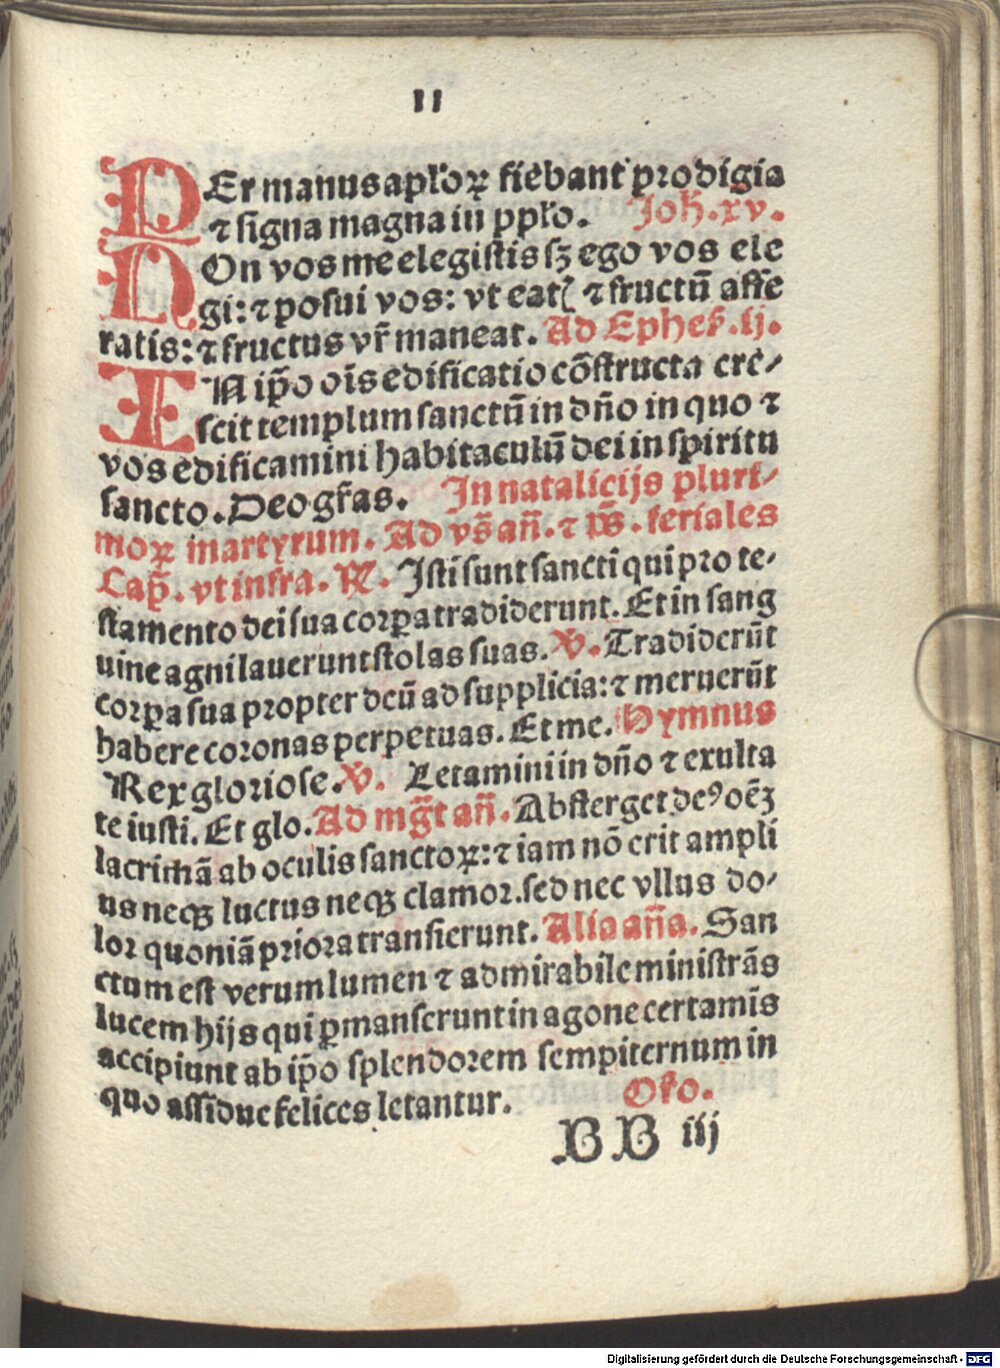 11
PEr manus apl'oꝝ fiebant prodigia
⁊ signa magna in pplo. Joh̄.xv.
NOn vos me elegistis sꝫ ego vos ele
gi: ⁊ posui vos: vt eat⟨ ⁊ fructū affe
ratis: ⁊ fructus vr̄ maneat. Ad Ephes̄.ij.
IN ip̄o oīs edificatio cōstructa cre⸗
scit templum sanctū in dn̄o in quo ⁊
vos edificamini habitaculū dei in spiritu
sancto. Deo gr̄as. In natalicijs pluri⸗
moꝝ martyrum. Ad vs̄ an̄. ⁊ ps̄. feriales
Cap̄. vt infra. ℞. Isti sunt sancti qui pro te⸗
stamento dei sua corꝑa tradiderunt. Et in sang
uine agni lauerunt stolas suas. ℣. Tradiderūt
corꝑa sua propter deū ad supplicia: ⁊ meruerūt
habere coronas perpetuas. Et me. Hymnus
Rex gloriose. ℣. Letamini in dn̄o ⁊ exulta
te iusti. Et glo. Ad mḡt an̄. Absterget deꝰ oēꝫ
lacrimā ab oculis sanctoꝝ: ⁊ iam nō erit ampli
us neqꝫ luctus neqꝫ clamor. sed nec vllus do⸗
lor quoniā priora transierunt. Alia an̄a. San
ctum est verum lumen ⁊ admirabile ministrās
lucem hijs qui ꝑmanserunt in agone certamīs
accipiunt ab ip̄o splendorem sempiternum in
quo assidue felices letantur. Oro.
BB iij
Digitalisierung gefördert durch die Deutsche Forschungsgemeinschaft - DFG